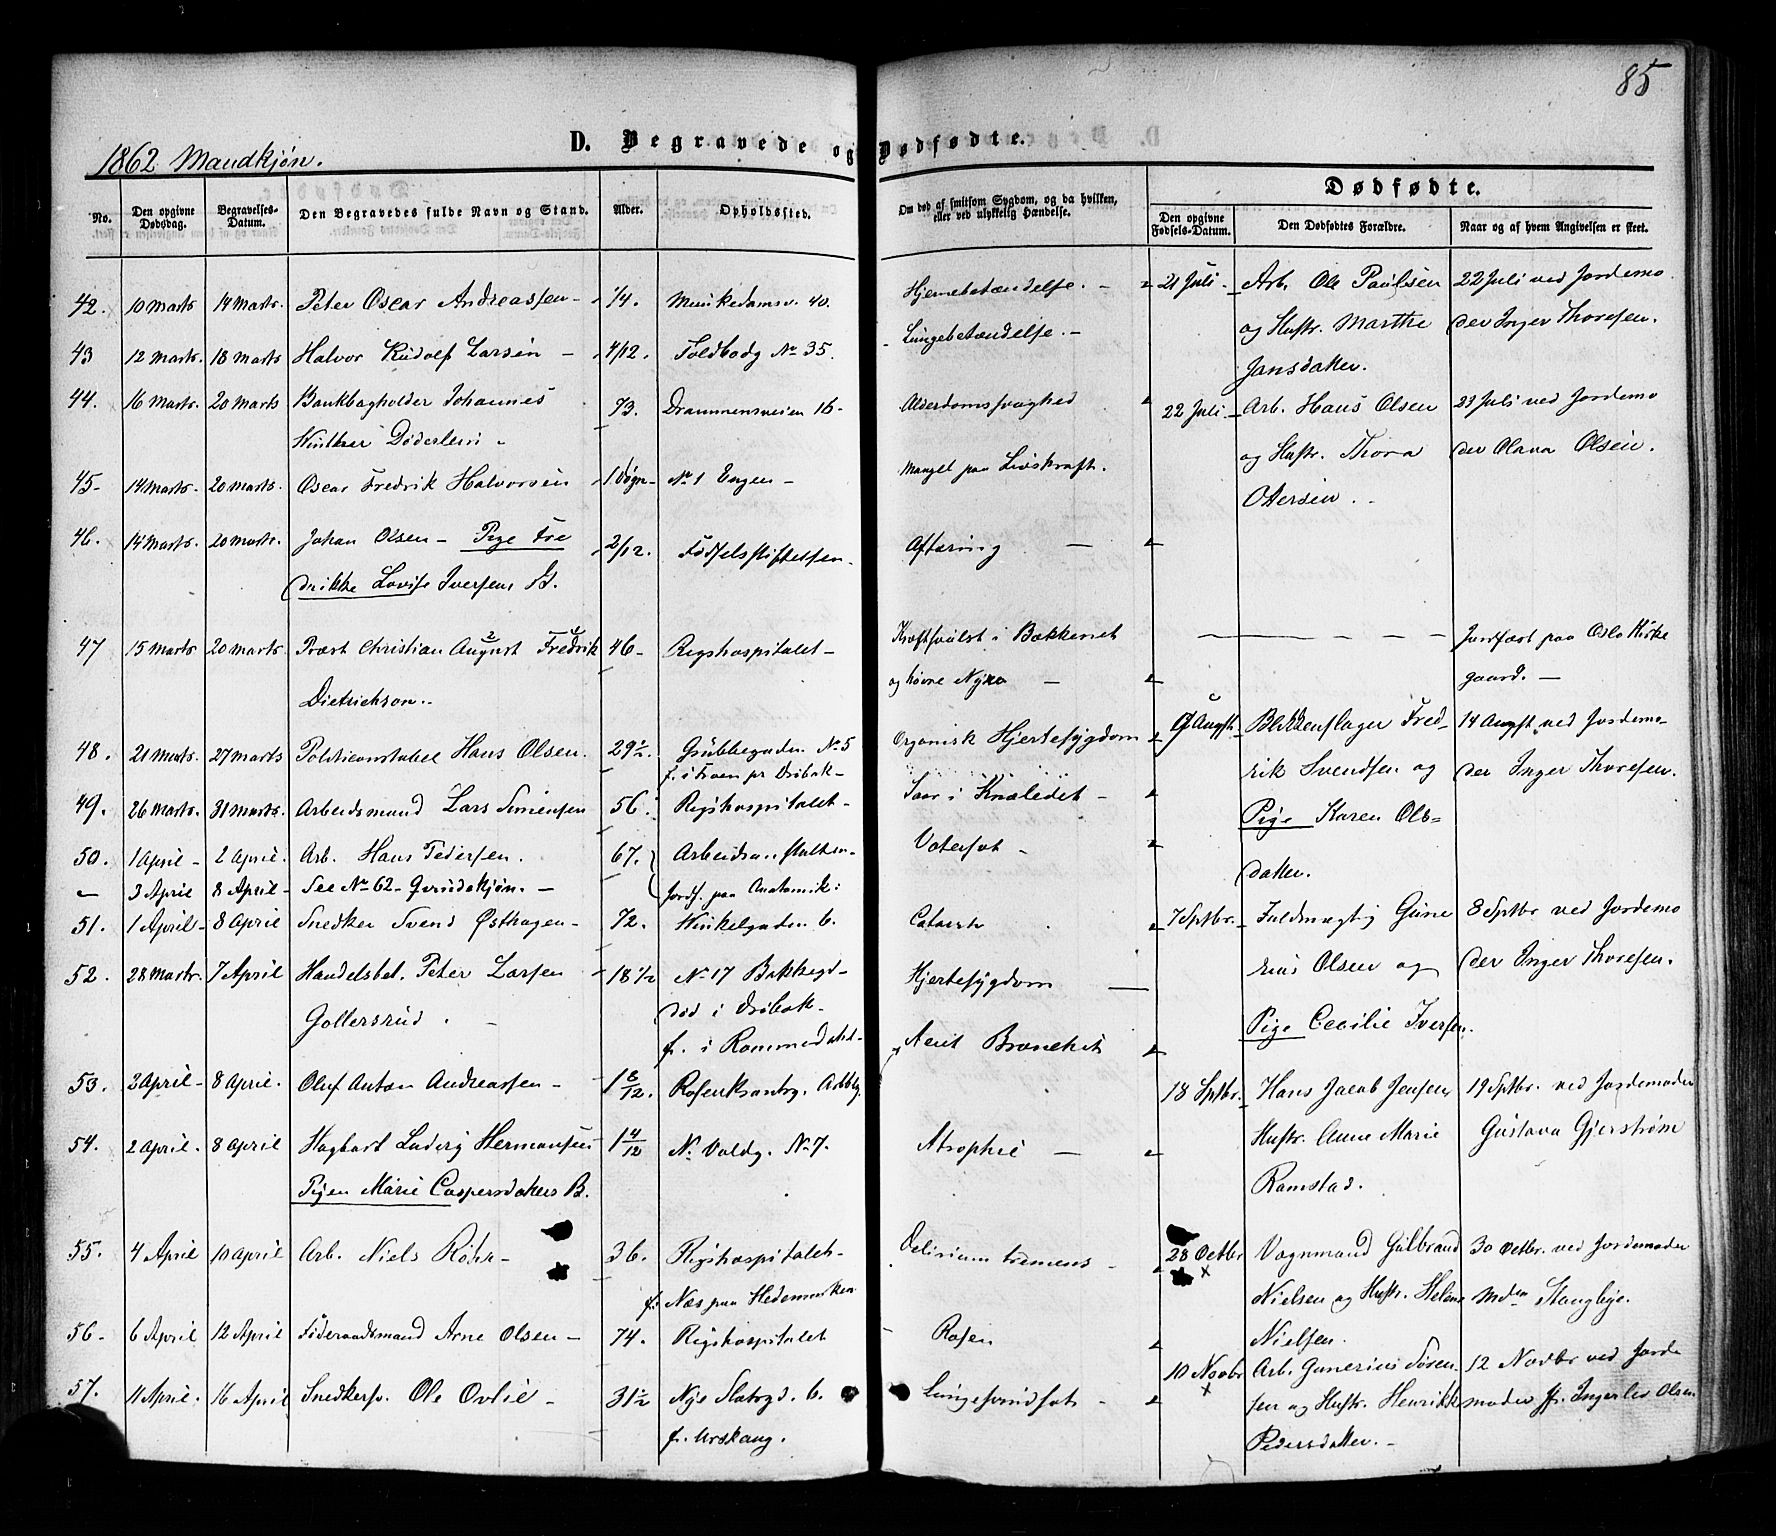 85
1862 Mandkjøn.
D. Begravede og Dødfødte.
No.
Den opgivne Dødsdag.
Begravelses-Datum.
Den Begravedes fulde Navn og Stand.
Alder.
Opholdssted.
Om død af smitsom Sygdom, og da hvilken, eller ved ulykkelig Hændelse.
Dødfødte.
Den opgivne Fødsels-Datum.
Den Dødfødtes Forældre.
Naar og af hvem Angivelsen er skeet.
42. 10 Marts 14 Marts. Peter Oscar Andreassen 1/4. Munkedamsv. 40. Hjernebetændelse.
43 12 Marts. 18 Marts. Halvor Rudolf Larsen 4/12. Toldbodg No 35. Lungebetændelse.
44. 16 Marts. 20 Marts Bankbogholder Johannes 73. Drammensveien 16. Alderdomssvaghed
Winther Døderlein
45 14 Marts. 20 Marts. Oscar Fredrik Halvorsen 1 Døgn No 1 Engen Mangel paa Livskraft.
46. 14 Marts. 20 Marts. Johan Olsen - Pige Fre 2/12. Fødselsstiftelsen. Aftæring
drikke Lovise Iversens B.
47 15 Marts 20 Marts Præst Christian August Fredrik 46 Rigshospitalet Kræftsvulst i Bækkenet
Dietrichson. og høire Nyre
48. 21 Marts. 27 Marts Politiconstabel Hans Olsen. 29 1/2. Grubbegaden No 5 Organisk Hjertesygdom
f. i Froen pr Drøbak
49. 26 Marts. 31 Marts. Arbeidsmand Lars Simensen 56. Rigshospitalet Saar i Knæledet
50. 1 April 2 April. Arb. Hans Pedersen. 67. Arbeidsanstalten Vatersot
3 April 8 April See No 62 Qvindekjøn. Jordf. paa Anatomik:
51. 1 April 8 April Snedker Svend Østhagen 72. Winkelgaden 6. Catarrh
52. 28 Marts. 7 April Handelsbet. Peter Larsen 18 1/2 No 17 Bakkegd Hjertesygdom
Gollersrud. død i Drøbak
f. i Rommedalen
53. 2 April 8 April. Oluf Anton Andreassen 1 8/12. Rosenkrantzg. Acut Bronchit
54. 2 April. 8 April Hagbart Ludvig Hermansen 1 4/12 N. Voldg. No 7. Atrophie
Pigen Marie Caspersdatters B.
55. 4 April 10 April Arb. Niels Rohr 36. Rigshospitalet Delirium tremens
f. Næs paa Hedemarken
56. 6 April 12 April Føderaadsmand Arne Olsen 74. Rigshospitalet Rosen
57. 11 April. 16 April Snedkersv. Ole Ovlie 31 1/2 Nye Slotsgd. 6. Lungesvindsot
f. Urskoug.
21 Juli. Arb. Ole Paulsen 22 Juli ved Jordemo
og Hustr. Marthe der Inger Thoresen.
Jansdatter.
22 Juli. Arb. Hans Olsen 23 Juli ved Jordemo
og Hustr. Thora der Olava Olsen.
Ottersen.
Jordfæst paa Oslo Kirke
gaard.
7 Augst. Blikkenslager Fred 14 Augst ved Jordemo
rik Svendsen og der Inger Thoresen.
Pige Karen Ols
datter.
7 Septbr. Fuldmægtig Gune 8 Septbr ved Jordemo
rius Olsen og der Inger Thoresen.
Pige Cecilie Iversen.
18 Septbr. Hans Jacob Jensen 19 Septbr. ved Jordemoder
Hustr. Anne Marie Gustava Gjerstrøm
Ramstad.
28 Octbr Vognmand Gulbrand 30 Octbr. ved Jordemoder
Nielsen og Hustr. Helene Mdm Stangbye.
Nielsen.
10 Novbr Arb. Gunerius Søren 12 Novbr ved Jorde
sen og Hustr. Henrikke moder Ingerlev Olsen
Pedersdatter.